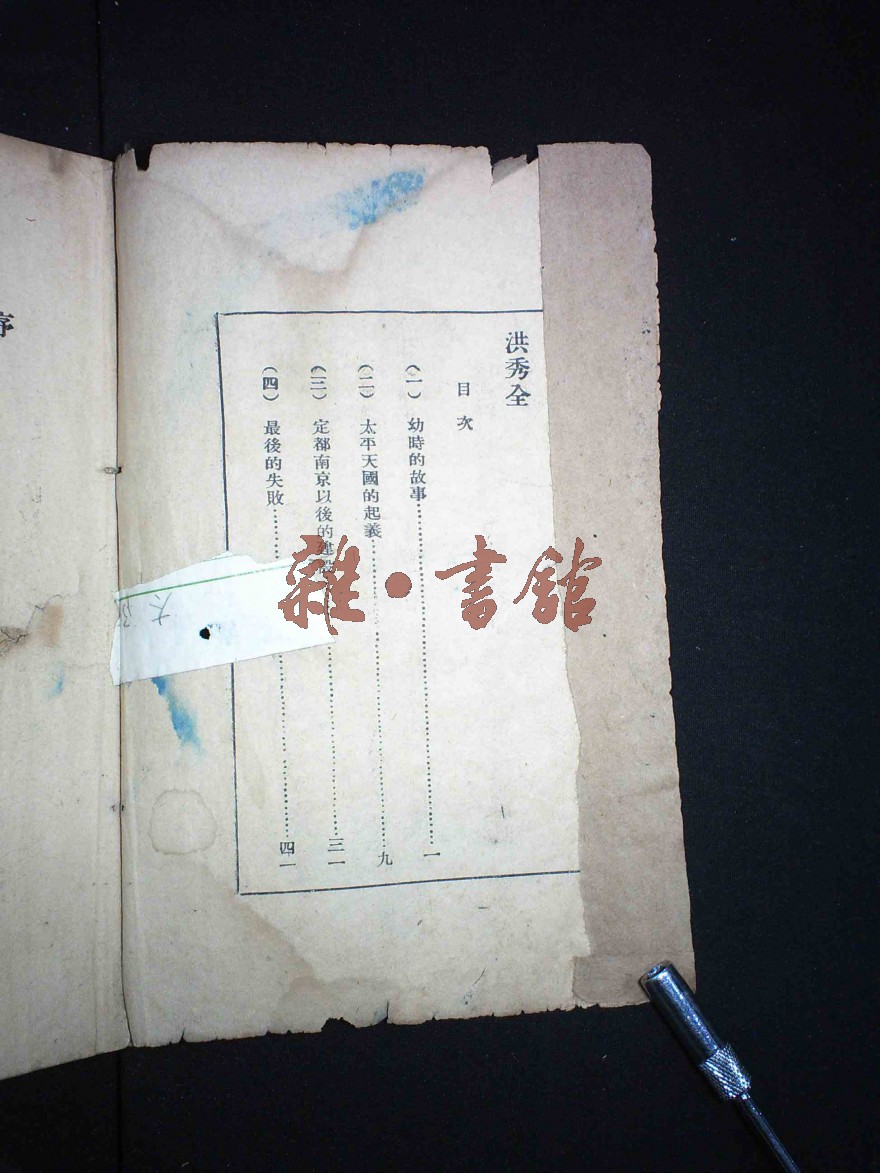 洪秀全
目次
(一) 幼時的故事……一
(二) 太平天國的起義……九
(三) 定都南京以後的建設……三一
(四) 最後的失敗……四一
雜·書館
序